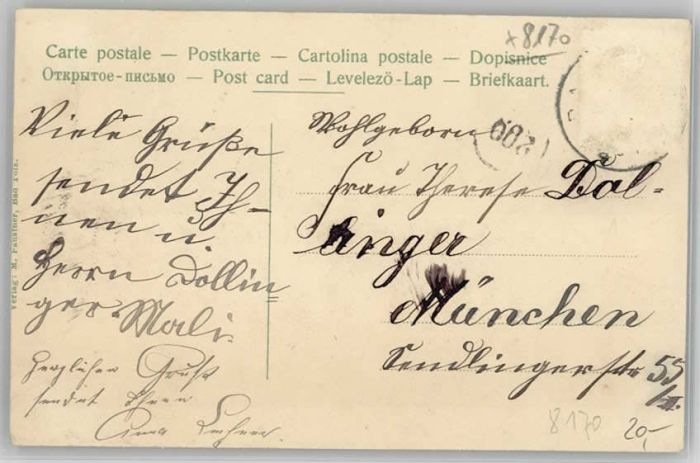 x 8170
Carte postale — Postkarte — Cartolina postale — Dopisnice
Открытое-письмо — Post card — Levelező-Lap — Briefkaart.
Viele Grüße
sendet Ih-
nen u.
Herrn Dollin
ger Mali.
Herzlichen Gruß
sendet Ihnen
Anna
Wohlgeborn
Frau Therese Dol-
linger
München
Sendlingerstr 55
/II.
Verlag: M. Faustner, Bad Tölz.
8170
20,-